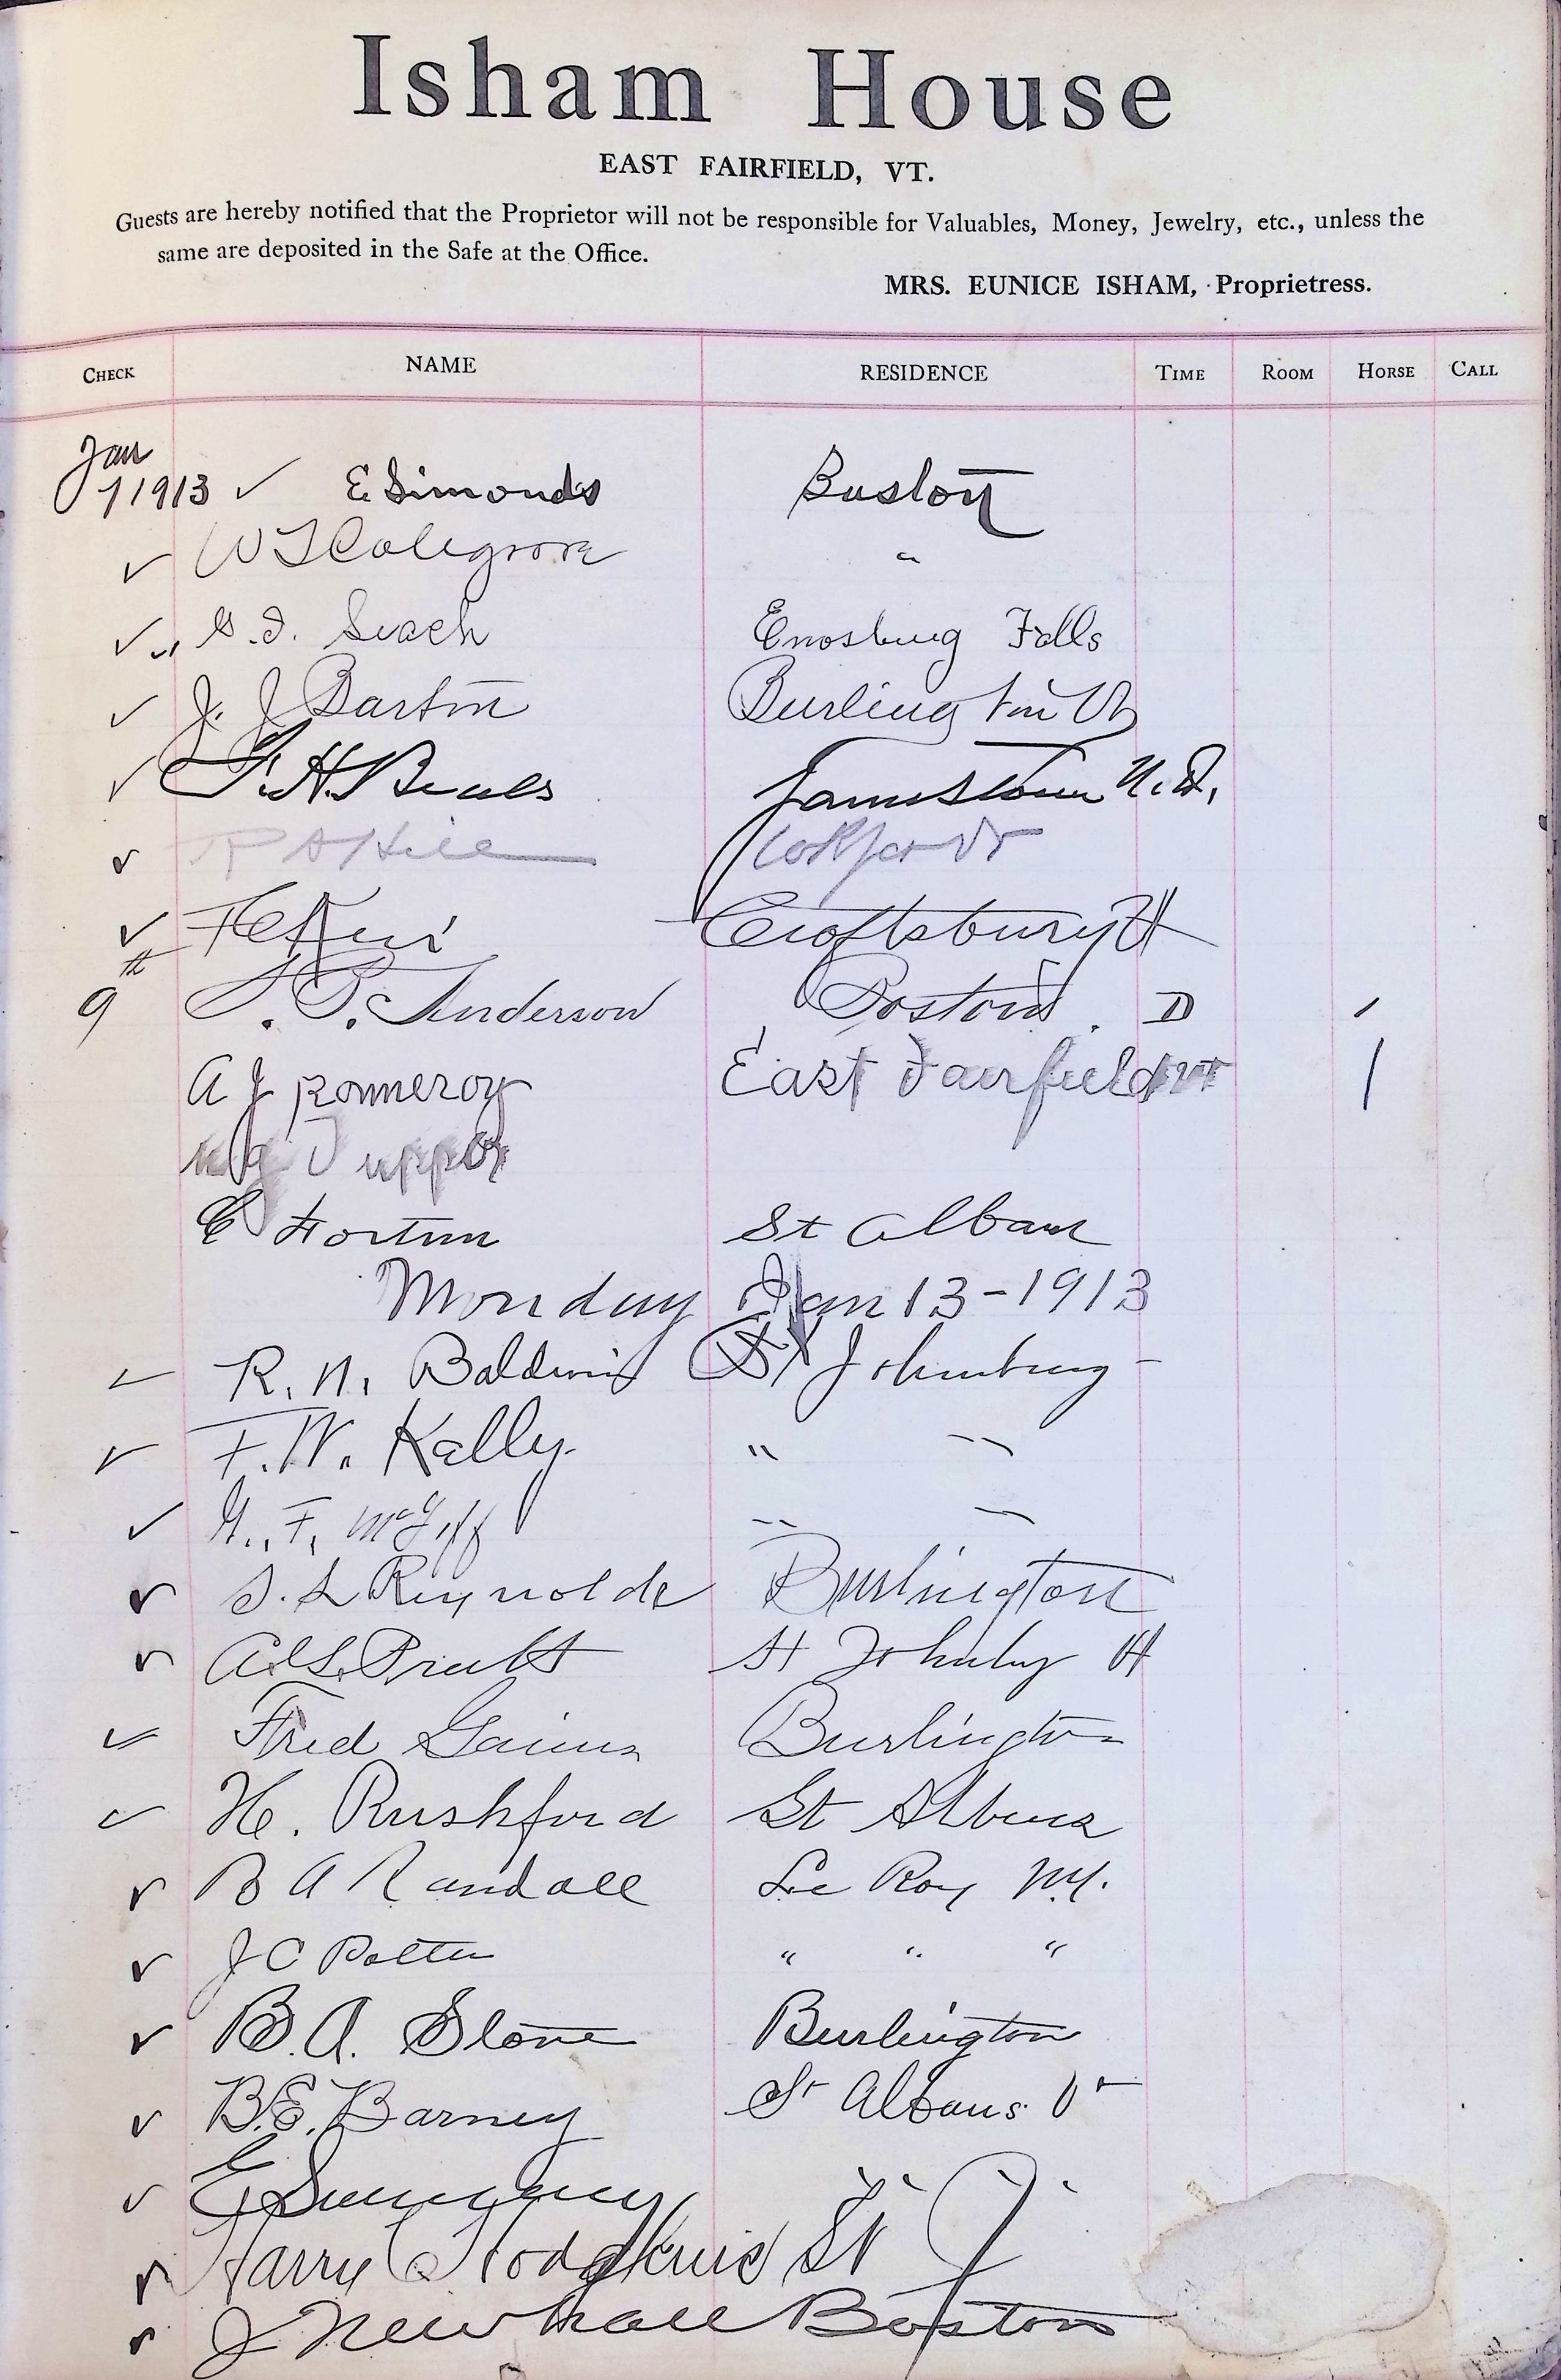 Isham House
EAST FAIRFIELD, VT.
Guests are hereby notified that the Proprietor will not be responsible for Valuables, Money, Jewelry, etc., unless the
same are deposited in the Safe at the Office.
MRS. EUNICE ISHAM, Proprietress.
CHECK NAME RESIDENCE TIME ROOM HORSE CALL
Jan
7 1913 ✓ E. Simonds Boston
✓ W S Colegrove "
✓ Enosburg Falls
✓ J. J Barton Burlington Vt
✓ Jamestown
✓ R A Hill Vt
✓ Craftsbury Vt
9th Anderson Boston. D
A J pommeroy East Fairfield vt
St Alban
Monday Jan 13-1913
✓ R. N. Baldwin St Johnsbury
✓ F. W. Kelly. " "
✓ F. McGiff " "
✓ S. L Reynolds Burlington
✓ Pratt St Johnsby Vt
✓ Fred Burlington
✓ H. Rushford St Albans
✓ B A Randall Le Roy N.Y.
✓ J C Potter " " "
✓ B. A. Stone Burlington
✓ B. E. Barney St Albans Vt
✓ E " "
✓ Harry Hodgkins St J
✓ J Newhall Boston